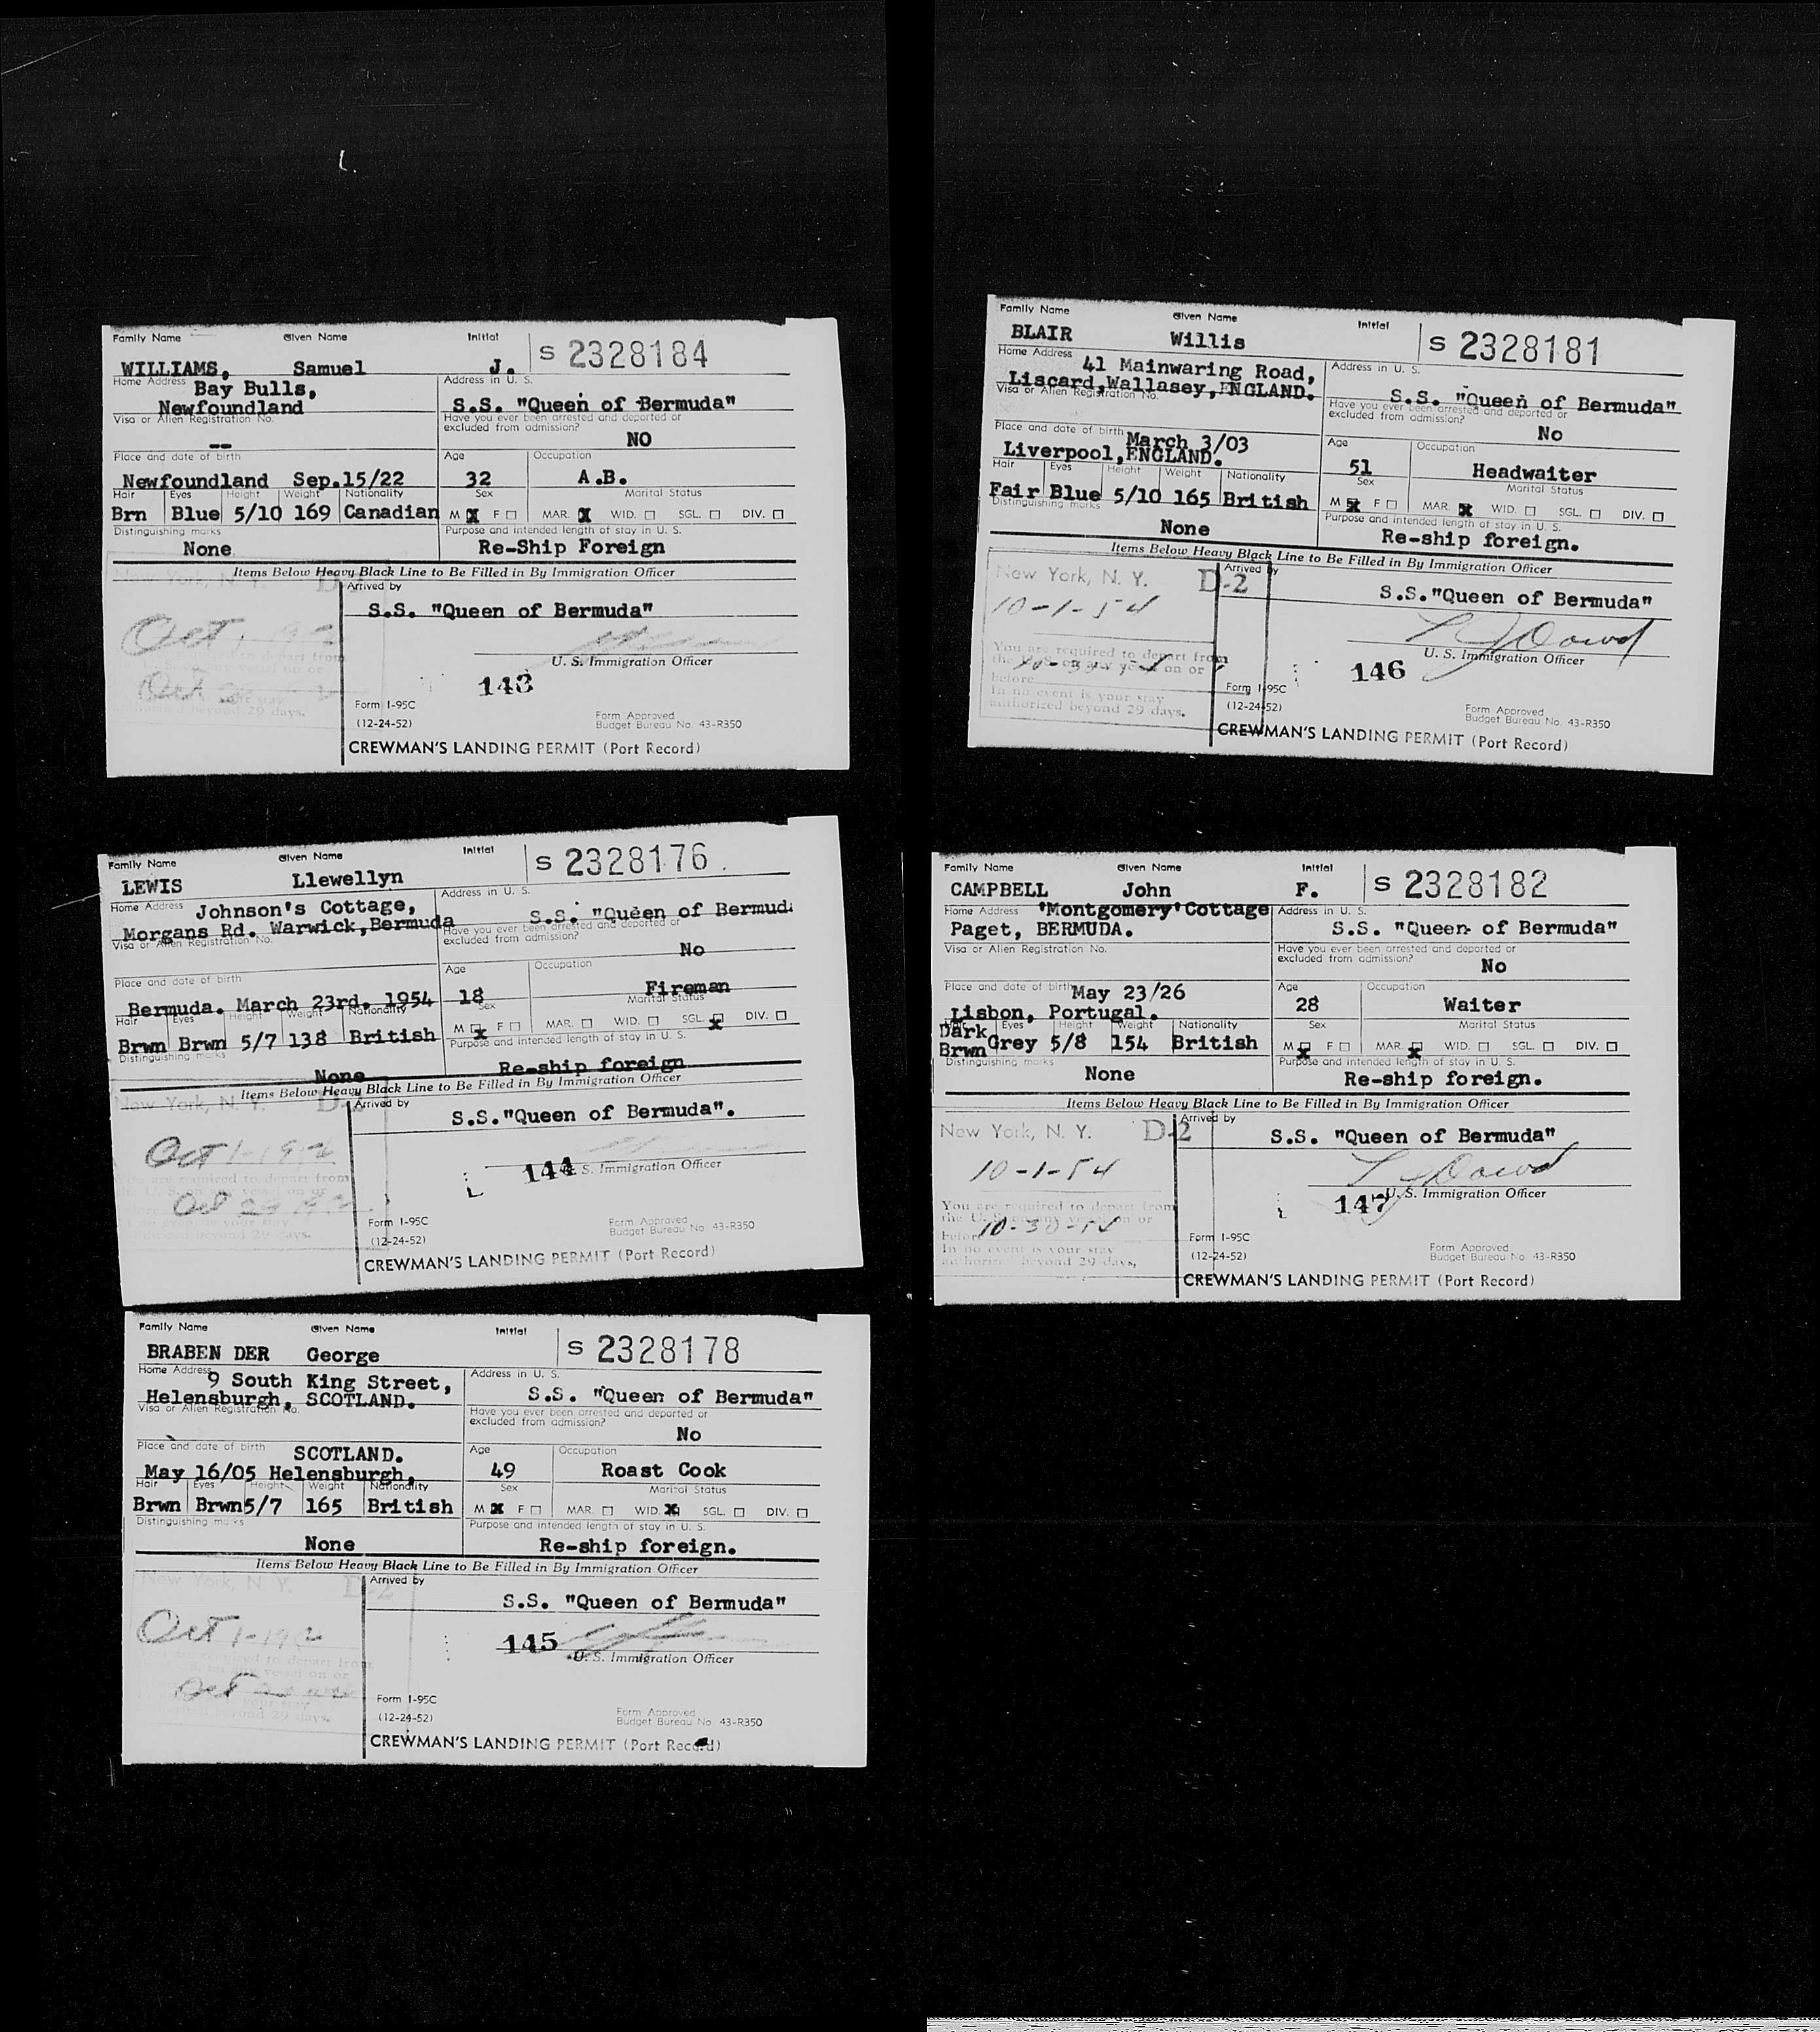 Family Name Given Name Initial S 2328184
WILLIAMS, Samuel J.
Home Address Address in U. S.
Bay Bulls,
Newfoundland S.S. "Queen of Bermuda"
Visa or Alien Registration No. Have you ever been arrested and deported or
excluded from admission?
-- NO
Place and date of birth Age Occupation
Newfoundland Sep.15/22 32 A.B.
Hair Eyes Height Weight Nationality Sex Marital Status
Brn Blue 5/10 169 Canadian M X F MAR. X WID. SGL. DIV.
Distinguishing marks Purpose and intended length of stay in U. S.
None Re-Ship Foreign
Items Below Heavy Black Line to Be Filled in By Immigration Officer
Arrived by
S.S. "Queen of Bermuda"
Oct
U. S. Immigration Officer
143
Oct
authorized beyond 29 days.
Form I-95C
(12-24-52)
Form Approved
Budget Bureau No. 43-R350
CREWMAN'S LANDING PERMIT (Port Record)
Family Name Given Name Initial S 2328176
LEWIS Llewellyn
Home Address Johnson's Cottage, Address in U. S.
Morgans Rd. Warwick,Bermuda S.S. "Queen of Bermud
Visa or Alien Registration No. Have you ever been arrested and deported or
excluded from admission?
No
Place and date of birth Age Occupation
Bermuda. March 23rd. 1954 18 Fireman
Hair Eyes Height Weight Nationality Sex Marital Status
Brwn Brwn 5/7 138 British M X F MAR. WID. SGL. X DIV.
Distinguishing marks Purpose and intended length of stay in U. S.
None Re-ship foreign
Items Below Heavy Black Line to Be Filled in By Immigration Officer
New York, N. Y. D-2 Arrived by
S.S."Queen of Bermuda".
Oct 1-
144 U. S. Immigration Officer
required to depart from
Oct
beyond 29 days.
Form I-95C
(12-24-52)
Form Approved
Budget Bureau No. 43-R350
CREWMAN'S LANDING PERMIT (Port Record)
Family Name Given Name Initial S 2328178
BRABEN DER George
Home Address 9 South King Street, Address in U. S.
Helensburgh, SCOTLAND. S.S. "Queen of Bermuda"
Visa or Alien Registration No. Have you ever been arrested and deported or
excluded from admission?
No
Place and date of birth SCOTLAND. Age Occupation
May 16/05 Helensburgh, 49 Roast Cook
Hair Eyes Height Weight Nationality Sex Marital Status
Brwn Brwn 5/7 165 British M X F MAR. WID. X SGL. DIV.
Distinguishing marks Purpose and intended length of stay in U. S.
None Re-ship foreign.
Items Below Heavy Black Line to Be Filled in By Immigration Officer
New York, N. Y. D-2 Arrived by
S.S. "Queen of Bermuda"
Oct 1-
145
U. S. Immigration Officer
required to depart from
vessel on or
Oct
beyond 29 days.
Form I-95C
(12-24-52)
Form Approved
Budget Bureau No. 43-R350
CREWMAN'S LANDING PERMIT (Port Record)
Family Name Given Name Initial S 2328181
BLAIR Willis
Home Address 41 Mainwaring Road, Address in U. S.
Liscard,Wallasey,ENGLAND. S.S. "Queen of Bermuda"
Visa or Alien Registration No. Have you ever been arrested and deported or
excluded from admission?
No
Place and date of birth March 3/03 Age Occupation
Liverpool,ENGLAND. 51 Headwaiter
Hair Eyes Height Weight Nationality Sex Marital Status
Fair Blue 5/10 165 British M X F MAR. X WID. SGL. DIV.
Distinguishing marks Purpose and intended length of stay in U. S.
None Re-ship foreign.
Items Below Heavy Black Line to Be Filled in By Immigration Officer
New York, N. Y. D-2 Arrived by
S.S."Queen of Bermuda"
10-1-54
U. S. Immigration Officer
You are required to depart from
the U.S. on any vessel on or
before
146
In no event is your stay
authorized beyond 29 days.
Form I-95C
(12-24-52)
Form Approved
Budget Bureau No. 43-R350
CREWMAN'S LANDING PERMIT (Port Record)
Family Name Given Name Initial S 2328182
CAMPBELL John F.
Home Address 'Montgomery' Cottage Address in U. S.
Paget, BERMUDA. S.S. "Queen of Bermuda"
Visa or Alien Registration No. Have you ever been arrested and deported or
excluded from admission?
No
Place and date of birth May 23/26 Age Occupation
Lisbon, Portugal. 28 Waiter
Hair Eyes Height Weight Nationality Sex Marital Status
Dark
Brwn Grey 5/8 154 British M X F MAR. X WID. SGL. DIV.
Distinguishing marks Purpose and intended length of stay in U. S.
None Re-ship foreign.
Items Below Heavy Black Line to Be Filled in By Immigration Officer
New York, N. Y. D-2 Arrived by
S.S. "Queen of Bermuda"
10-1-54
147 U. S. Immigration Officer
You are required to depart from
the U.S. on any vessel on or
before 10-30-54
In no event is your stay
authorized beyond 29 days,
Form I-95C
(12-24-52)
Form Approved
Budget Bureau No. 43-R350
CREWMAN'S LANDING PERMIT (Port Record)